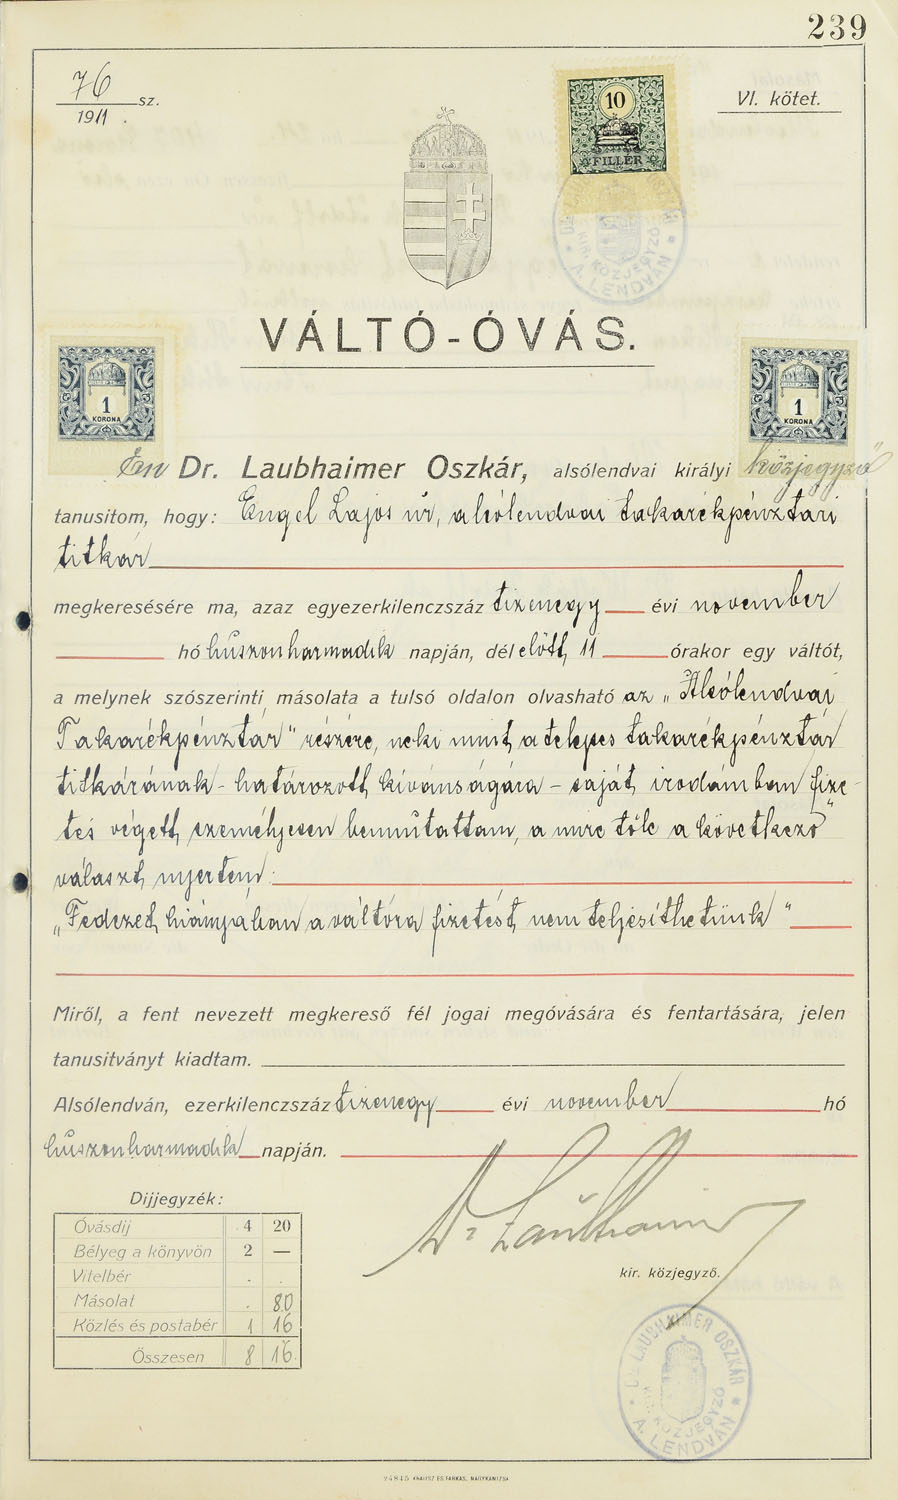 239
76
1911. sz.
VI. kötet.
10
FILLÉR
DR. LAUBHAIMER OSZKÁR
KIR. KÖZJEGYZŐ
A. LENDVÁN
VÁLTÓ-ÓVÁS.
1
KORONA
1
KORONA
Én Dr. Laubhaimer Oszkár, alsólendvai királyi közjegyző
tanusitom, hogy: Engel Lajos úr, alsólendvai takarékpénztári
titkár
megkeresésére ma, azaz egyezerkilenczszáz tizenegy évi november
hó huszonharmadik napján, dél előtt 11 órakor egy váltót,
a melynek szószerinti másolata a tulsó oldalon olvasható az „Alsólendvai
Takarékpénztár" részére, neki mint a telepes takarékpénztár
titkárának - határozott kívánságára - saját irodámban fize-
tés végett személyesen bemutattam, a mire tőle a következő
választ nyertem:
„Fedezet hiányában a váltóra fizetést nem teljesíthetünk"
Miről, a fent nevezett megkereső fél jogai megóvására és fentartására, jelen
tanusitványt kiadtam.
Alsólendván, ezerkilenczszáz tizenegy évi november hó
huszonharmadik napján.
Dr Laubhaimer
kir. közjegyző.
Dijjegyzék:
Óvásdíj 4 20
Bélyeg a könyvön 2 —
Vitelbér . .
Másolat . 80
Közlés és postabér 1 16
Összesen 8 16
DR. LAUBHAIMER OSZKÁR
KIR. KÖZJEGYZŐ
A. LENDVÁN
24845 KRAUSZ ÉS FARKAS, NAGYKANIZSA